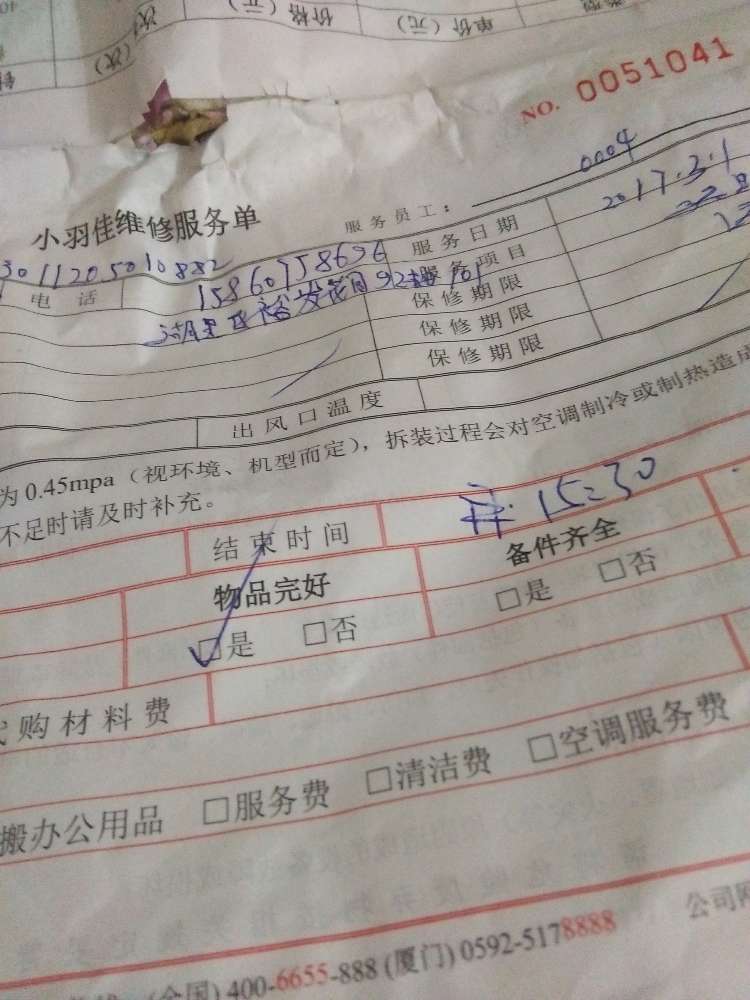 价格（元）
单价（元）
（次）
NO. 0051041
小羽佳维修服务单
服务员工：
0004
服务日期
2017.3.1
3011205010882
电话
15860758696
服务项目
湖里区裕发花园92
101
保修期限
保修期限
保修期限
出风口温度
为 0.45mpa（视环境、机型而定），拆装过程会对空调制冷或制热造成
不足时请及时补充。
结束时间
15:30
物品完好
备件齐全
□是 □否
□是 □否
购材料费
搬办公用品 □服务费 □清洁费 □空调服务费
公司网
(全国) 400-6655-888 (厦门) 0592-5178888